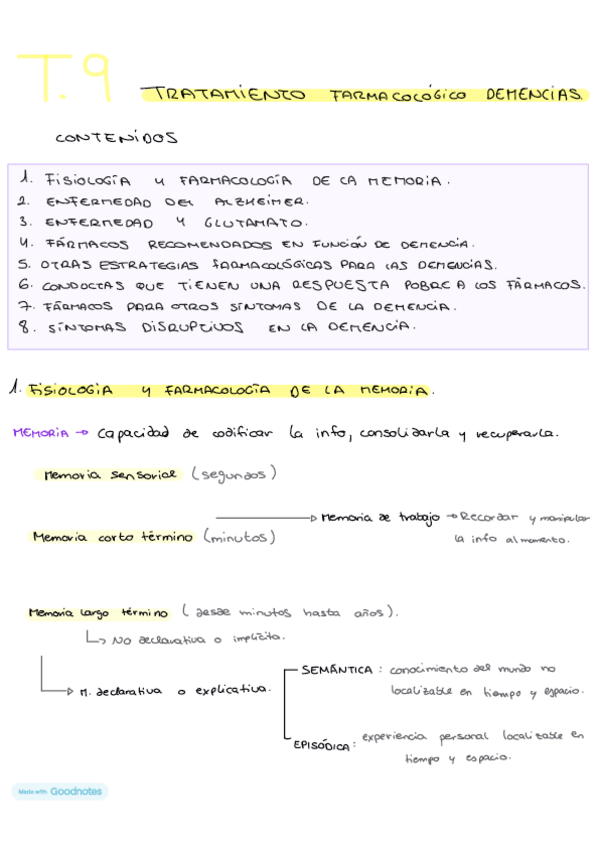 T.9
TRATAMIENTO FARMACOLÓGICO DEMENCIAS.
CONTENIDOS
1. FISIOLOGÍA Y FARMACOLOGÍA DE LA MEMORIA.
2. ENFERMEDAD DEL ALZHEIMER.
3. ENFERMEDAD Y GLUTAMATO.
4. FÁRMACOS RECOMENDADOS EN FUNCIÓN DE DEMENCIA.
5. OTRAS ESTRATEGIAS FARMACOLÓGICAS PARA LAS DEMENCIAS.
6. CONDUCTAS QUE TIENEN UNA RESPUESTA POBRE A LOS FÁRMACOS.
7. FÁRMACOS PARA OTROS SÍNTOMAS DE LA DEMENCIA.
8. SÍNTOMAS DISRUPTIVOS EN LA DEMENCIA.
1. FISIOLOGÍA Y FARMACOLOGÍA DE LA MEMORIA.
MEMORIA → capacidad de codificar la info, consolidarla y recuperarla.
Memoria sensorial (segundos)
Memoria corto término (minutos) → Memoria de trabajo → Recordar y manipular
la info al momento.
Memoria largo término (desde minutos hasta años).
↳ No declarativa o implícita.
↳ M. declarativa o explicativa.
SEMÁNTICA: conocimiento del mundo no
localizable en tiempo y espacio.
EPISÓDICA: experiencia personal localizable en
tiempo y espacio.
Made with Goodnotes